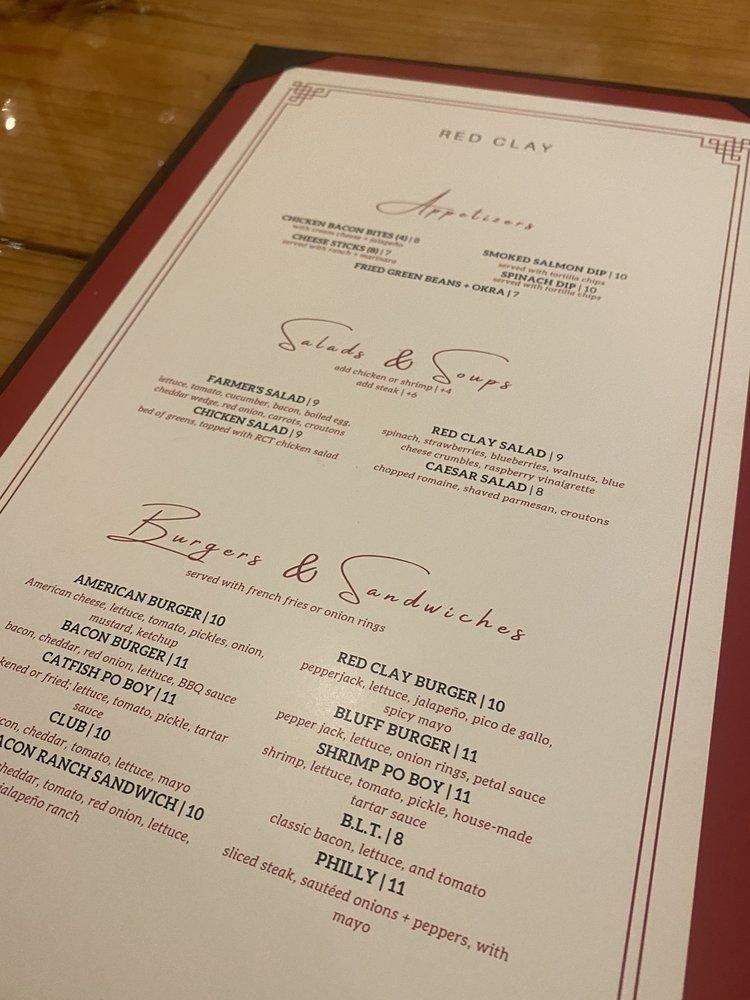 RED CLAY
Appetizers
CHICKEN BACON BITES (4) | 8
with cream cheese + jalapeño
CHEESE STICKS (8) | 7
served with ranch + marinara
SMOKED SALMON DIP | 10
served with tortilla chips
SPINACH DIP | 10
served with tortilla chips
FRIED GREEN BEANS + OKRA | 7
Salads & Soups
add chicken or shrimp | +4
add steak | +6
FARMER'S SALAD | 9
lettuce, tomato, cucumber, bacon, boiled egg,
cheddar wedge, red onion, carrots, croutons
CHICKEN SALAD | 9
bed of greens, topped with RCT chicken salad
RED CLAY SALAD | 9
spinach, strawberries, blueberries, walnuts, blue
cheese crumbles, raspberry vinaigrette
CAESAR SALAD | 8
chopped romaine, shaved parmesan, croutons
Burgers & Sandwiches
served with french fries or onion rings
AMERICAN BURGER | 10
American cheese, lettuce, tomato, pickles, onion,
mustard, ketchup
BACON BURGER | 11
bacon, cheddar, red onion, lettuce, BBQ sauce
CATFISH PO BOY | 11
or fried; lettuce, tomato, pickle, tartar
sauce
CLUB | 10
cheddar, tomato, lettuce, mayo
RANCH SANDWICH | 10
cheddar, tomato, red onion, lettuce,
jalapeño ranch
RED CLAY BURGER | 10
pepperjack, lettuce, jalapeño, pico de gallo,
spicy mayo
BLUFF BURGER | 11
pepper jack, lettuce, onion rings, petal sauce
SHRIMP PO BOY | 11
shrimp, lettuce, tomato, pickle, house-made
tartar sauce
B.L.T. | 8
classic bacon, lettuce, and tomato
PHILLY | 11
sliced steak, sautéed onions + peppers, with
mayo